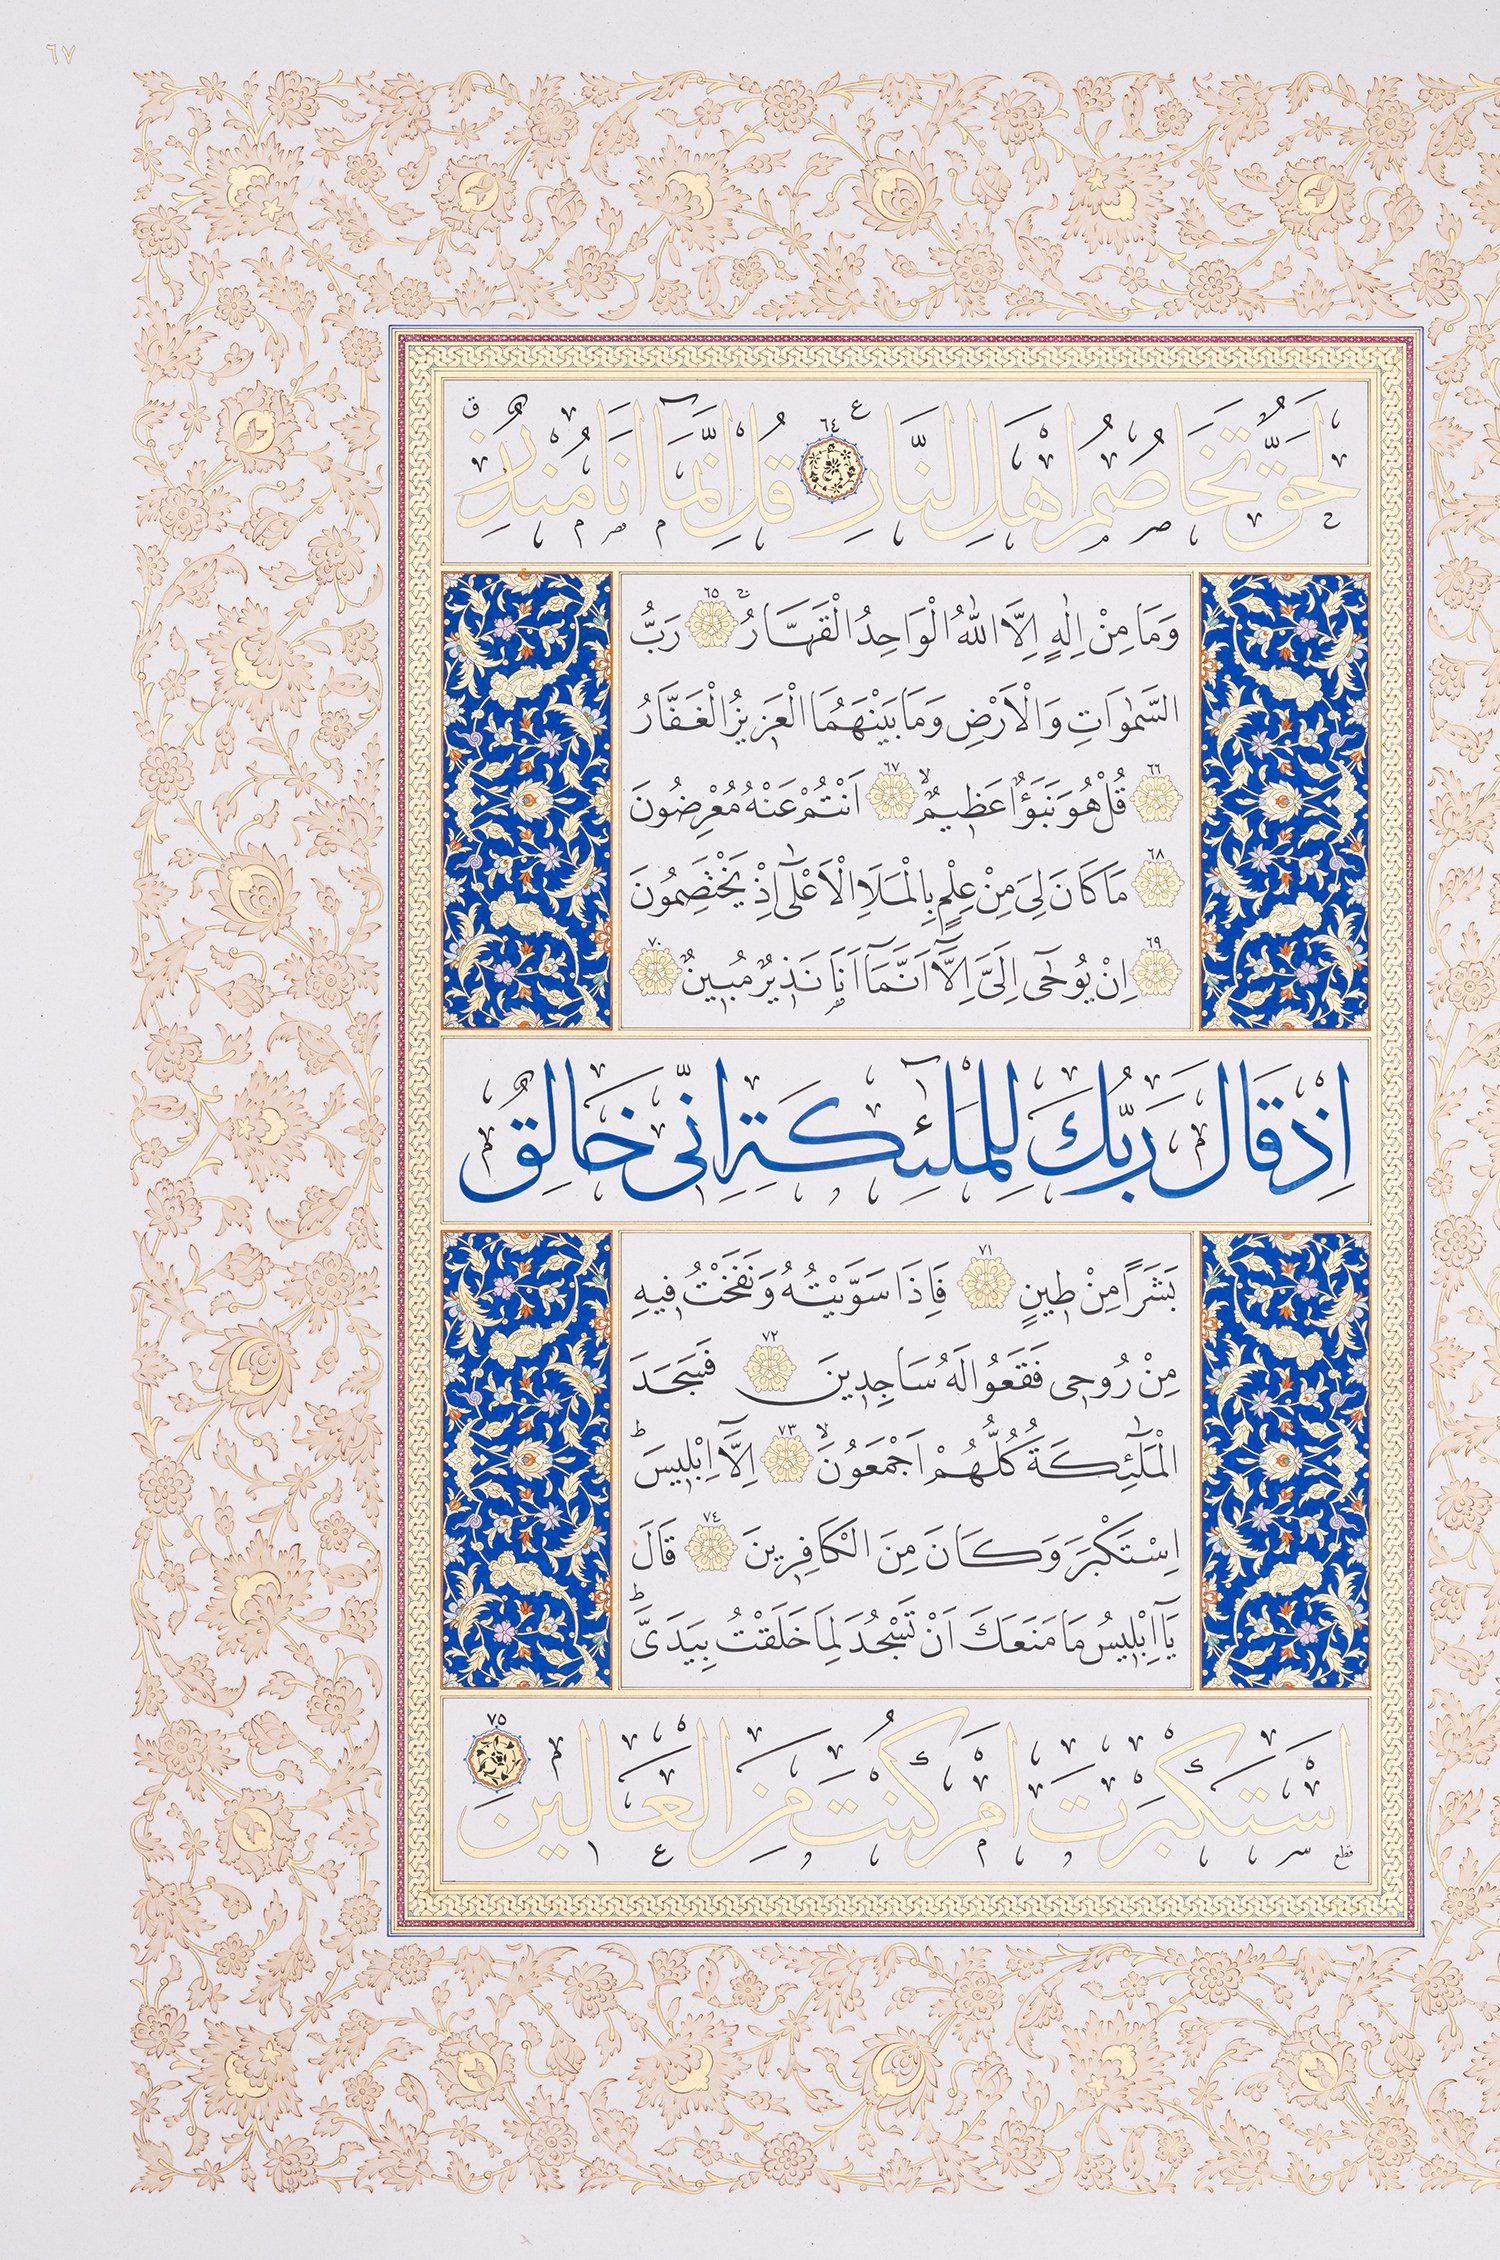 ٦٧
لَحَقٌّ تَخَاصُمُ اَهْلِ النَّارِ ٦٤ قُلْ اِنَّمَٓا اَنَا۬ مُنْذِرٌ
وَمَا مِنْ اِلٰهٍ اِلَّا اللّٰهُ الْوَاحِدُ الْقَهَّارُ ٦٥ رَبُّ
السَّمٰوَاتِ وَالْاَرْضِ وَمَا بَيْنَهُمَا الْعَزِيزُ الْغَفَّارُ
٦٦ قُلْ هُوَ نَبَؤٌا عَظِيمٌۙ ٦٧ اَنْتُمْ عَنْهُ مُعْرِضُونَ
٦٨ مَا كَانَ لِيَ مِنْ عِلْمٍ بِالْمَلَاِ الْاَعْلٰٓى اِذْ يَخْتَصِمُونَ
٦٩ اِنْ يُوحٰٓى اِلَيَّ اِلَّٓا اَنَّمَٓا اَنَا۬ نَذِيرٌ مُبِينٌ ٧٠
اِذْ قَالَ رَبُّكَ لِلْمَلٰٓئِكَةِ اِنّ۪ي خَالِقٌ
بَشَرًا مِنْ طِينٍ ٧١ فَاِذَا سَوَّيْتُهُ وَنَفَخْتُ فِيهِ
مِنْ رُوحِي فَقَعُوا لَهُ سَاجِدِينَ ٧٢ فَسَجَدَ
الْمَلٰٓئِكَةُ كُلُّهُمْ اَجْمَعُونَۙ ٧٣ اِلَّٓا اِبْلِيسَۜ
اِسْتَكْبَرَ وَكَانَ مِنَ الْكَافِرِينَ ٧٤ قَالَ
يَٓا اِبْلِيسُ مَا مَنَعَكَ اَنْ تَسْجُدَ لِمَا خَلَقْتُ بِيَدَيَّۜ
اَسْتَكْبَرْتَ اَمْ كُنْتَ مِنَ الْعَالِينَ ٧٥